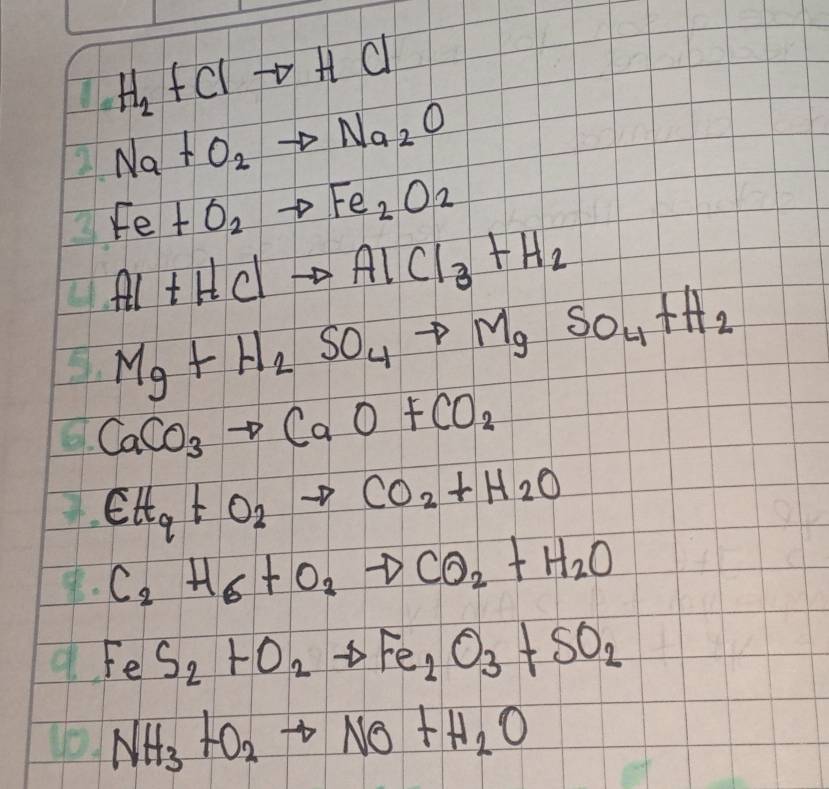 1. H₂ + Cl → H Cl
2. Na + O₂ → Na₂O
3. Fe + O₂ → Fe₂O₂
4. Al + HCl → AlCl₃ + H₂
5. Mg + H₂ SO₄ → Mg SO₄ + H₂
6. CaCO₃ → Ca O + CO₂
7. CH₄ + O₂ → CO₂ + H₂O
8. C₂ H₆ + O₂ → CO₂ + H₂O
9. FeS₂ + O₂ → Fe₂O₃ + SO₂
10. NH₃ + O₂ → NO + H₂O